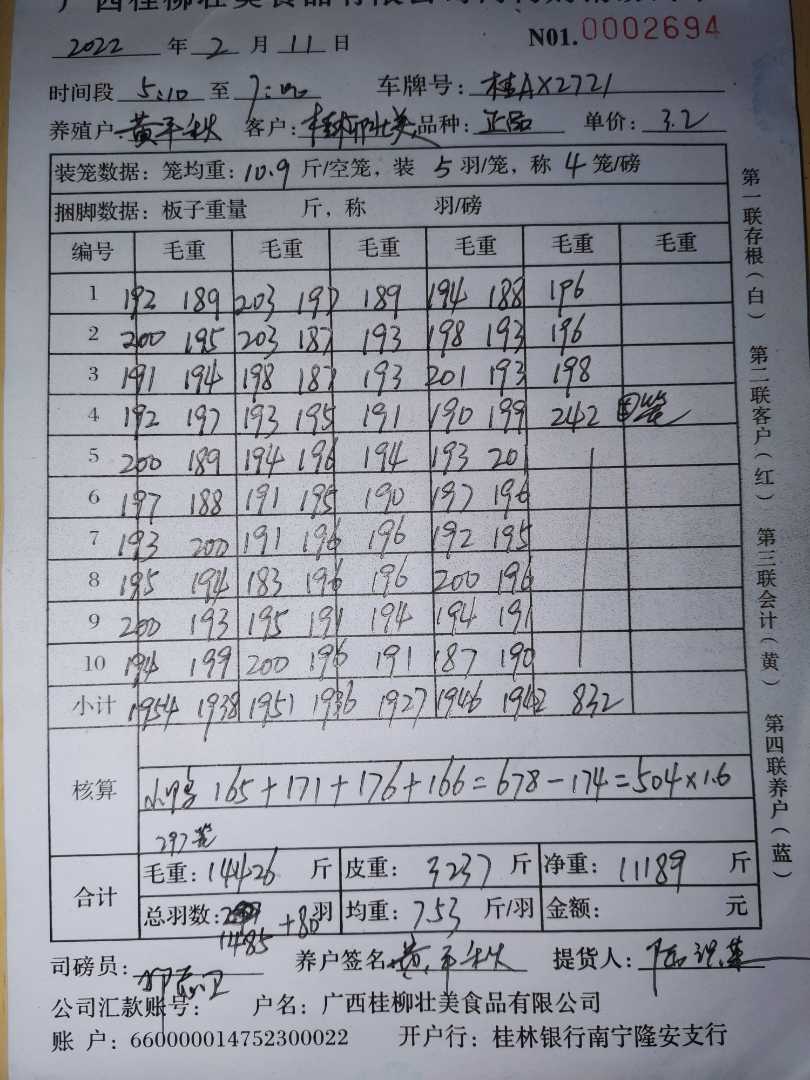 2022 年 2 月 11 日 N01.0002694
时间段 5:10 至 7:00 车牌号: 桂AX2721
养殖户: 黄平秋 客户: 桂柳壮美 品种: 正品 单价: 3.2
装笼数据: 笼均重: 10.9 斤/空笼, 装 5 羽/笼, 称 4 笼/磅
捆脚数据: 板子重量 斤, 称 羽/磅
编号 毛重 毛重 毛重 毛重 毛重 毛重
1 192 189 203 197 189 194 188 196
2 200 195 203 187 193 198 193 196
3 191 194 198 187 193 201 193 198
4 192 197 193 195 191 190 199 242 回笼
5 200 189 194 196 194 193 201
6 197 188 191 195 190 197 196
7 193 200 191 196 196 192 195
8 195 194 183 196 196 200 196
9 200 193 195 191 194 194 191
10 194 199 200 196 191 187 190
小计 1954 1938 1951 1936 1927 1946 1942 832
核算 165+171+176+166=678-174=504×1.6
297笼
合计 毛重: 14426 斤 皮重: 3237 斤 净重: 11189 斤
总羽数: 1485 +80 羽 均重: 7.53 斤/羽 金额: 元
司磅员: 养户签名: 黄平秋 提货人:
公司汇款账号: 户名: 广西桂柳壮美食品有限公司
账 户: 660000014752300022 开户行: 桂林银行南宁隆安支行
第一联存根(白) 第二联客户(红) 第三联会计(黄) 第四联养户(蓝)